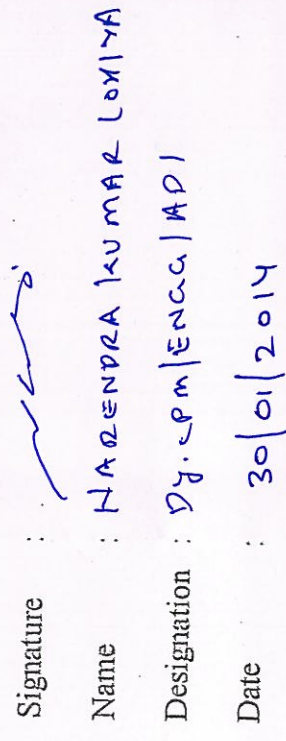 Signature :
Name : NARENDRA KUMAR LOHIYA
Designation : Dy.CPM/ENGG/ADI
Date : 30/01/2014